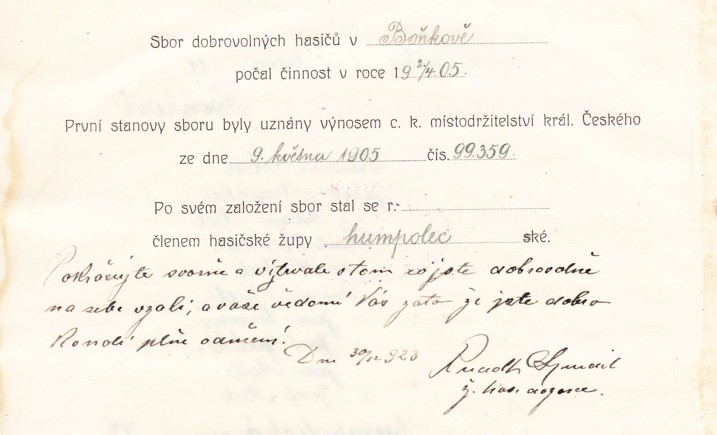 Sbor dobrovolných hasičů v Bořkově
počal činnost v roce 19 2/4 05.
První stanovy sboru byly uznány výnosem c. k. místodržitelství král. Českého
ze dne 9. května 1905 čís. 99.359.
Po svém založení sbor stal se r.
členem hasičské župy humpolec ské.
Pokračujte svorně a vytrvale v tom co jste dobrovolně
na sebe vzali, a vaše vědomí Vás zato že jste dobro
konali plně odmění!
Dne 30/12 923